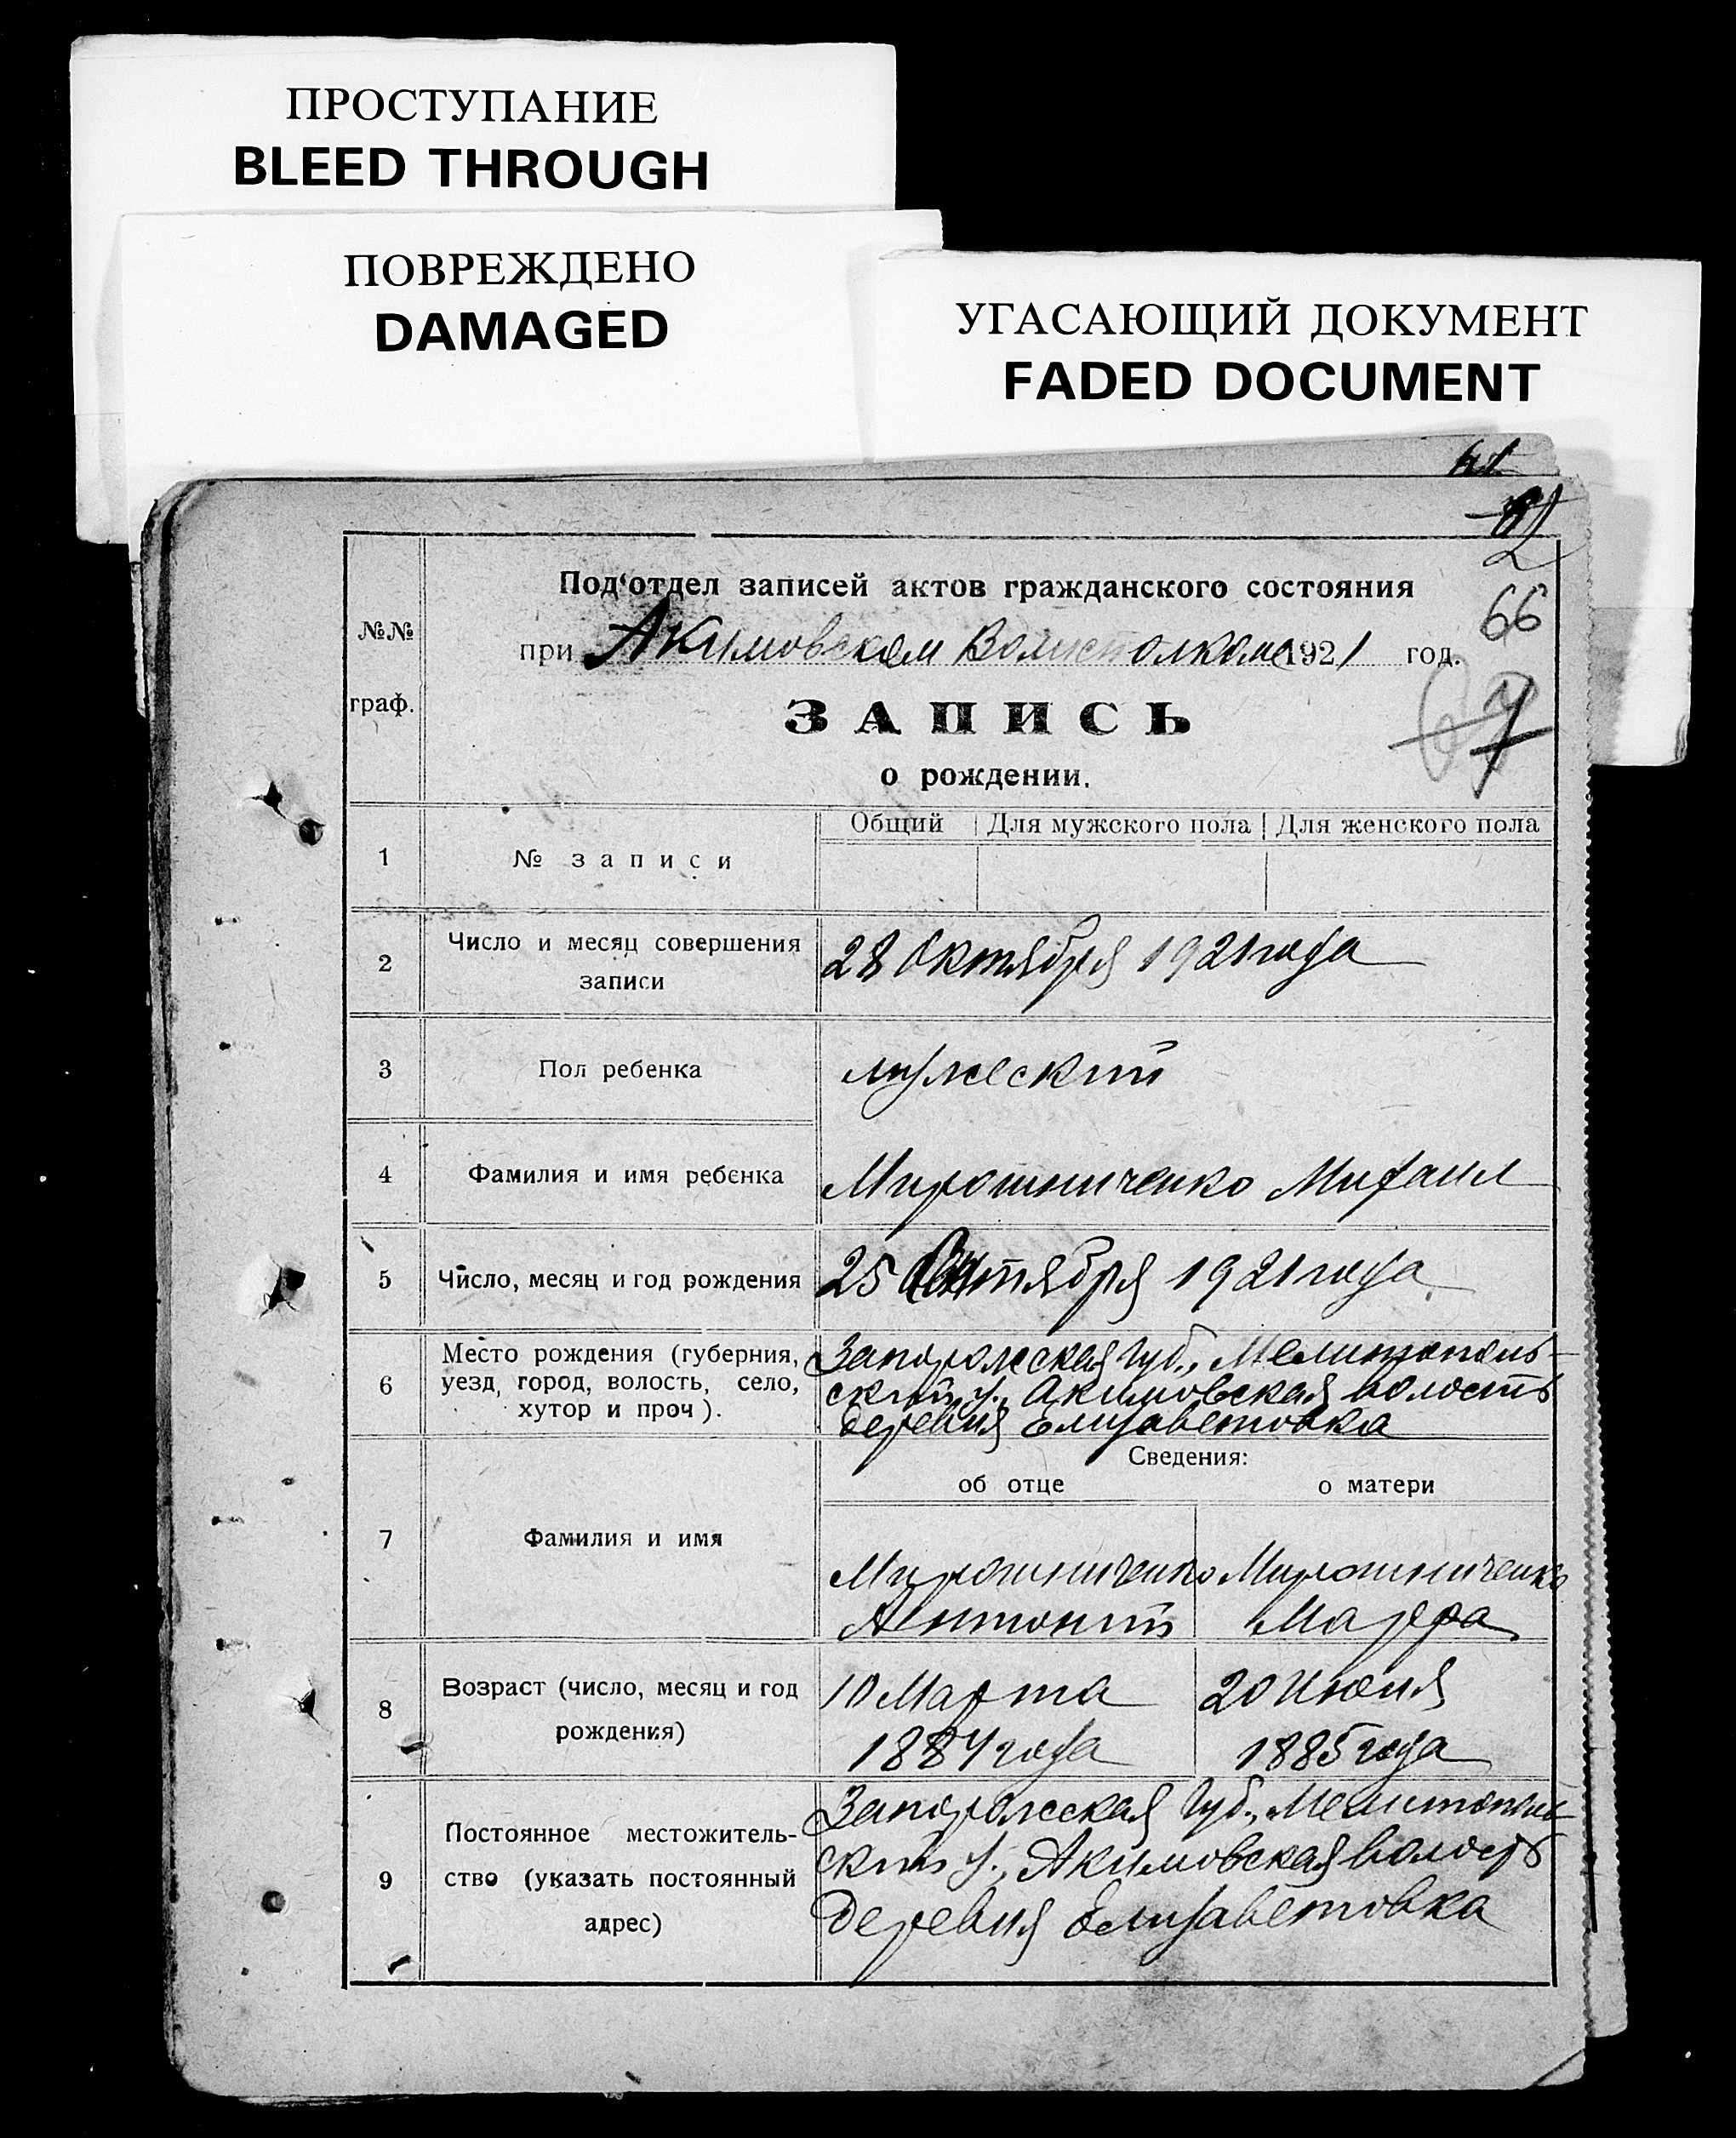 ПРОСТУПАНИЕ
BLEED THROUGH
ПОВРЕЖДЕНО
DAMAGED
УГАСАЮЩИЙ ДОКУМЕНТ
FADED DOCUMENT
41
2
Под‘отдел записей актов гражданского состояния
66
№№
при Акимовском Волисполкоме 1921 год.
граф.
ЗАПИСЬ
7
о рождении.
Общий Для мужского пола Для женского пола
1 № записи
2 Число и месяц совершения записи
28 Октября 1921 года
3 Пол ребенка
мужеский
4 Фамилия и имя ребенка
Мирошниченко Михаил
5 Число, месяц и год рождения
25 Октября 1921 года
6 Место рождения (губерния,
уезд, город, волость, село,
хутор и проч).
Запорожская Губ., Мелитополь-
ский у., Акимовская волость
деревня Елизаветовка
Сведения:
об отце о матери
7 Фамилия и имя
Мирошниченко Мирошниченко
Антоний Марфа
8 Возраст (число, месяц и год
рождения)
10 Марта 20 Июня
1884 года 1885 года
9 Постоянное местожитель-
ство (указать постоянный
адрес)
Запорожская Губ., Мелитополь
ский у., Акимовская волость
деревня Елизаветовка